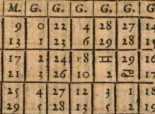 M. G. G. G. G. G. G.
9 0 22 4 28 27 14
13 1 23 6 29 28 15
17 2 24 8 II 29 16
21 3 26 10 2
25 4 27 12 3 1 18
29 28 13 5